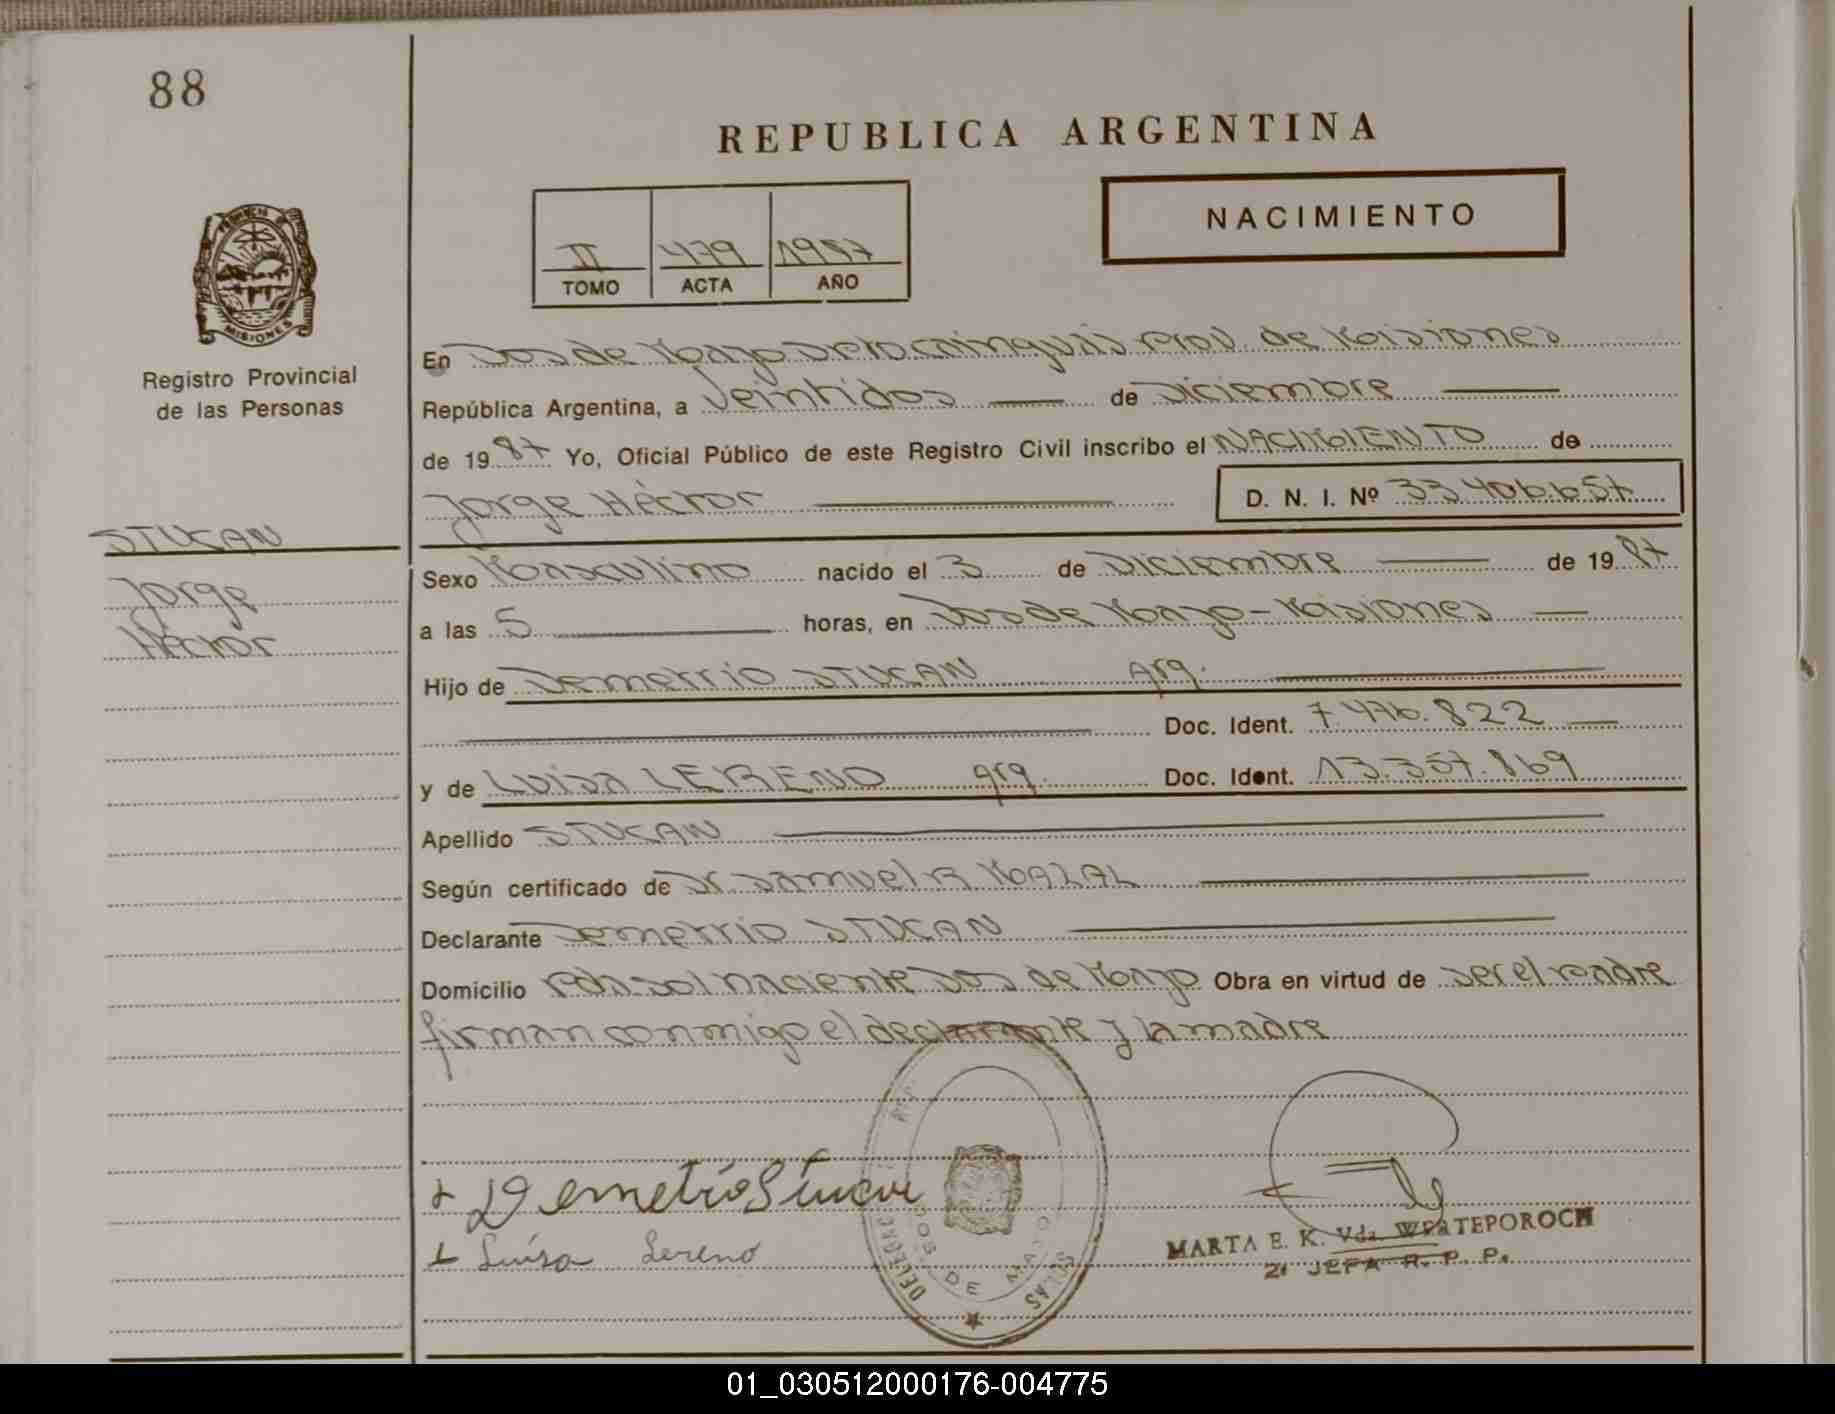 88
REPUBLICA ARGENTINA
NACIMIENTO
II 479 1987
TOMO ACTA AÑO
MISIONES
Registro Provincial
de las Personas
En Dos de Mayo Dpto Cainguás Prov. de Misiones
República Argentina, a Veintidos de Diciembre
de 1987 Yo, Oficial Público de este Registro Civil inscribo el NACIMIENTO de
Jorge Héctor D. N. I. Nº 33.406.657
STUCAN
Jorge
Héctor
Sexo Masculino nacido el 3 de Diciembre de 1987
a las 5 horas, en Dos de Mayo - Misiones
Hijo de Demetrio STUCAN Arg.
Doc. Ident. 7.476.822
y de Luisa LERENO arg. Doc. Ident. 13.357.869
Apellido STUCAN
Según certificado de Dr Samuel R
Declarante Demetrio STUCAN
Domicilio Pda Sol naciente Dos de Mayo Obra en virtud de ser el padre
firman conmigo el declarante y la madre
Demetrio
Luisa Lereno
DOS DE MAYO
MARTA E. K. Vda.
JEFA R. P. P.
01_030512000176-004775